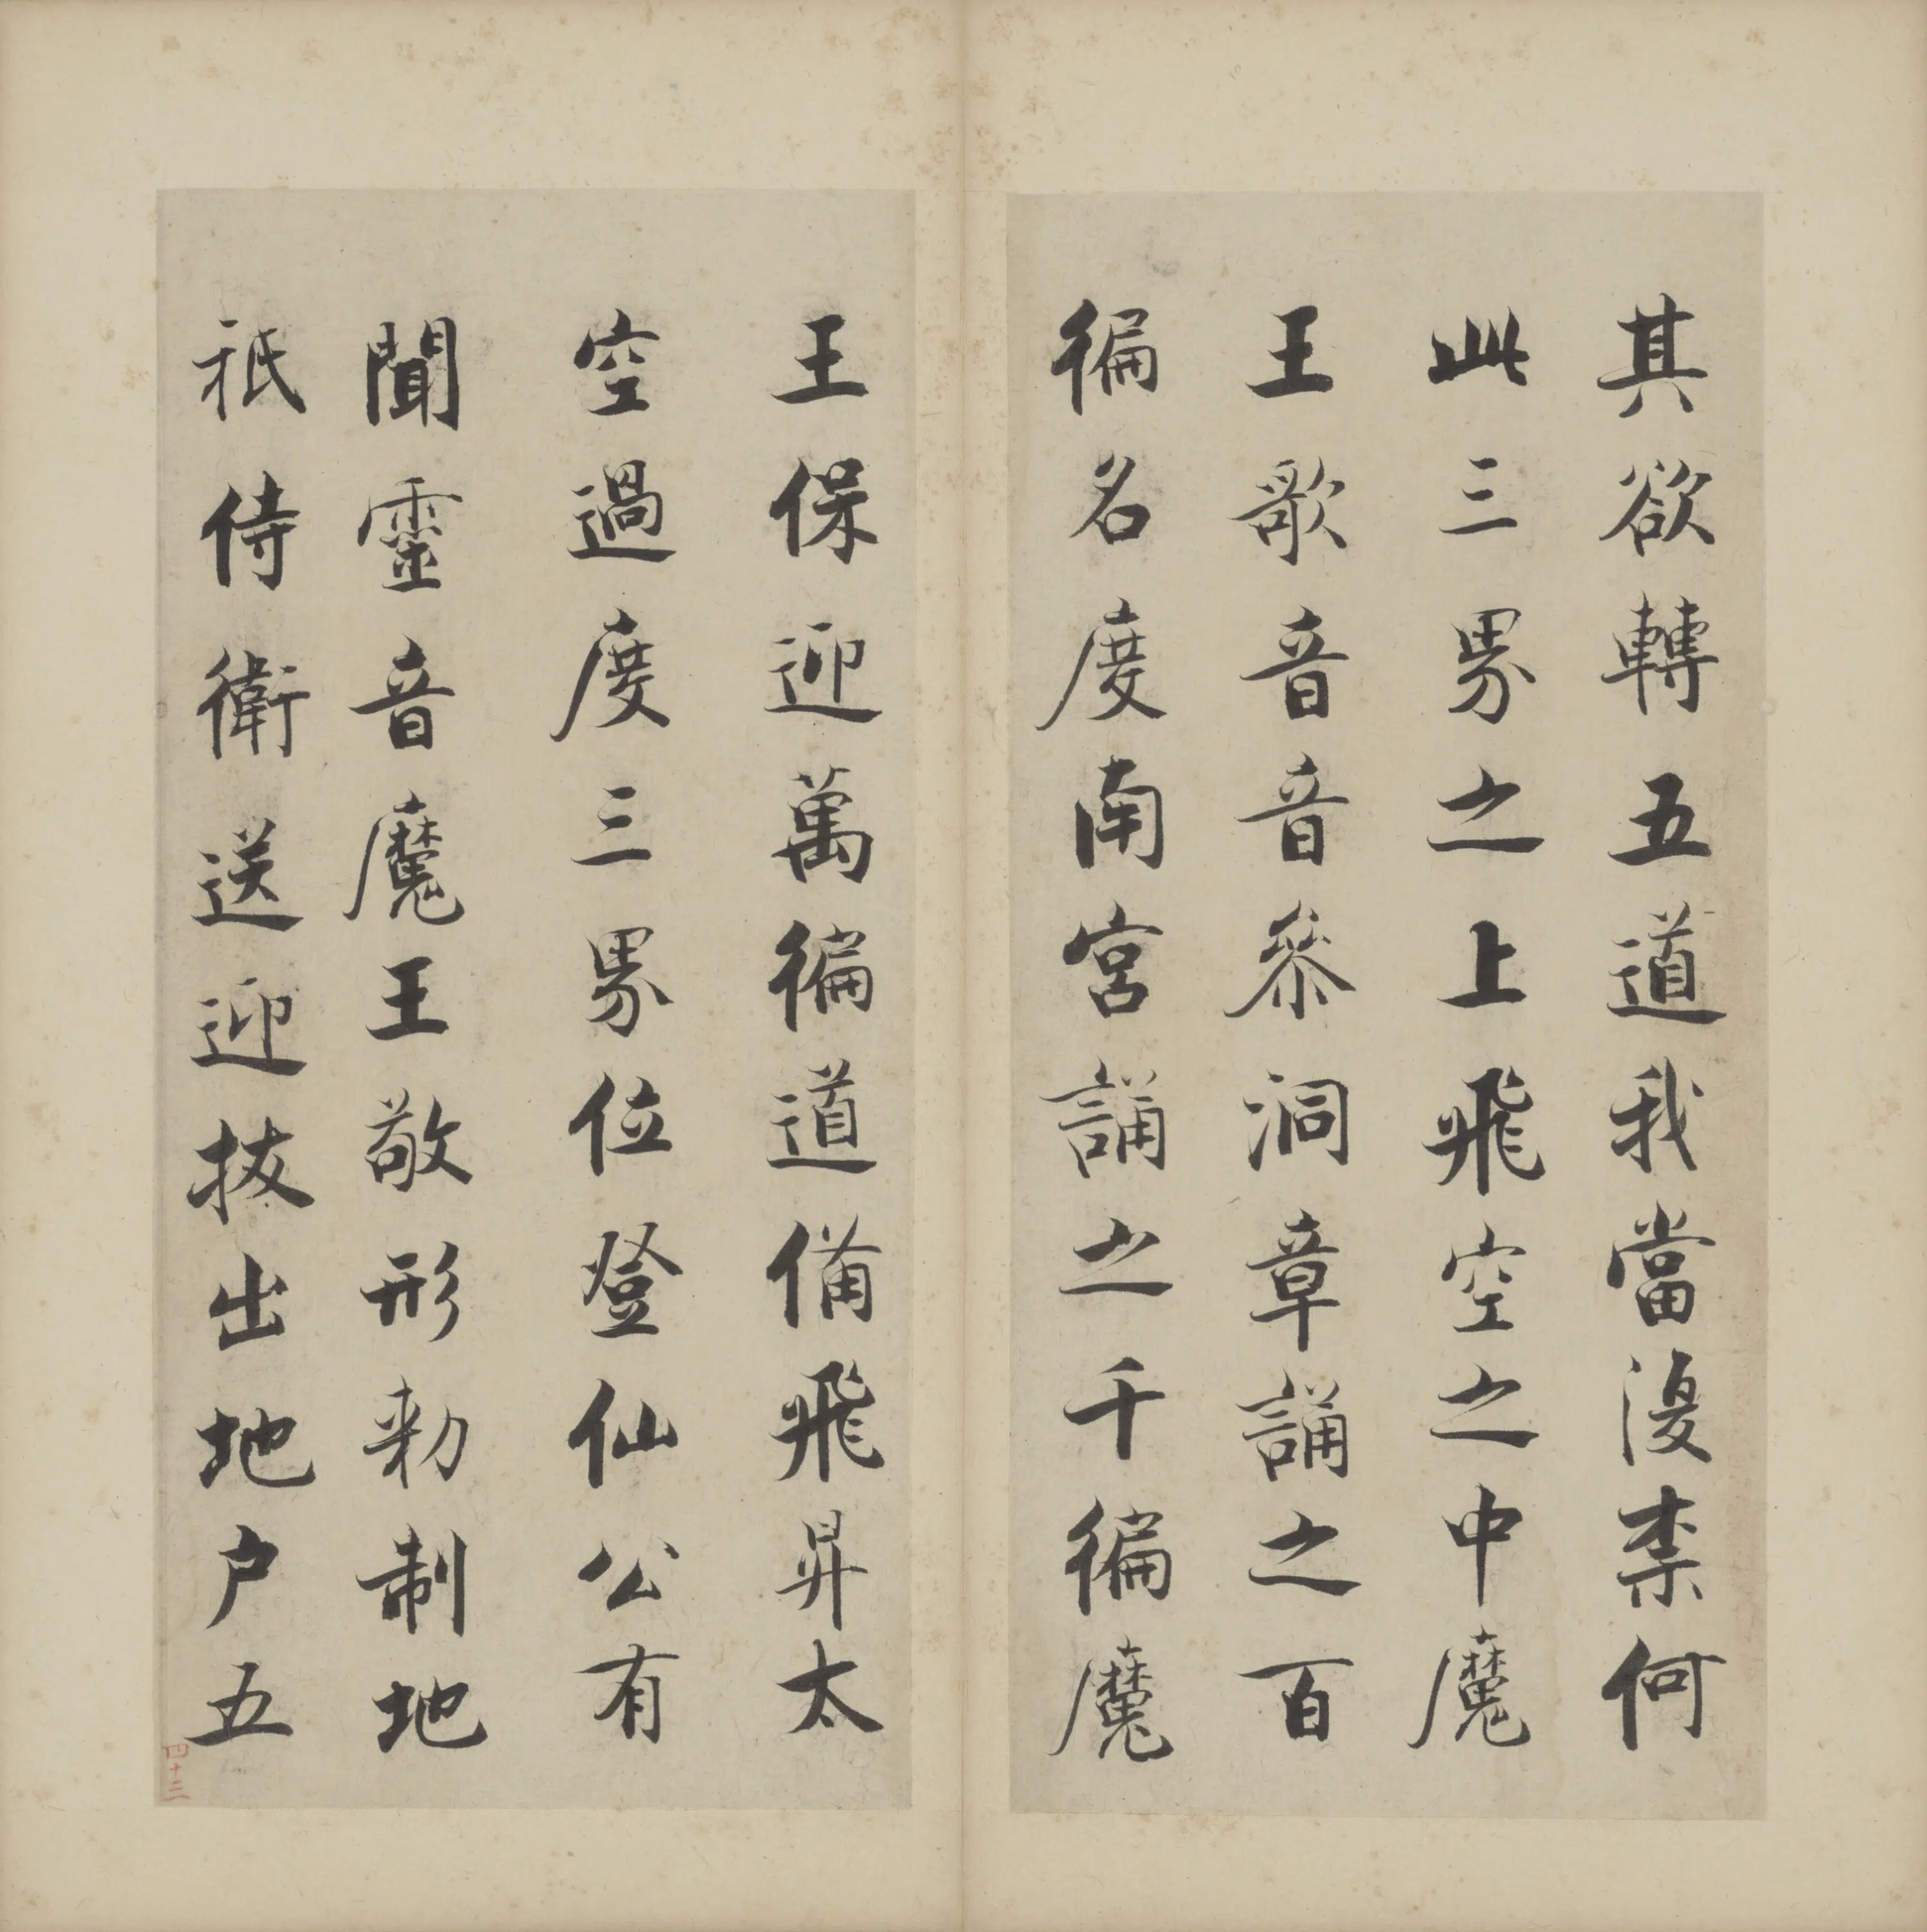 其欲轉五道我當復柰何
此三界之上飛空之中魔
王歌音音參洞章誦之百
徧名度南宮誦之千徧魔
王保迎萬徧道備飛昇太
空過度三界位登仙公有
聞靈音魔王敬形勑制地
祇侍衛送迎拔出地户五
四十二